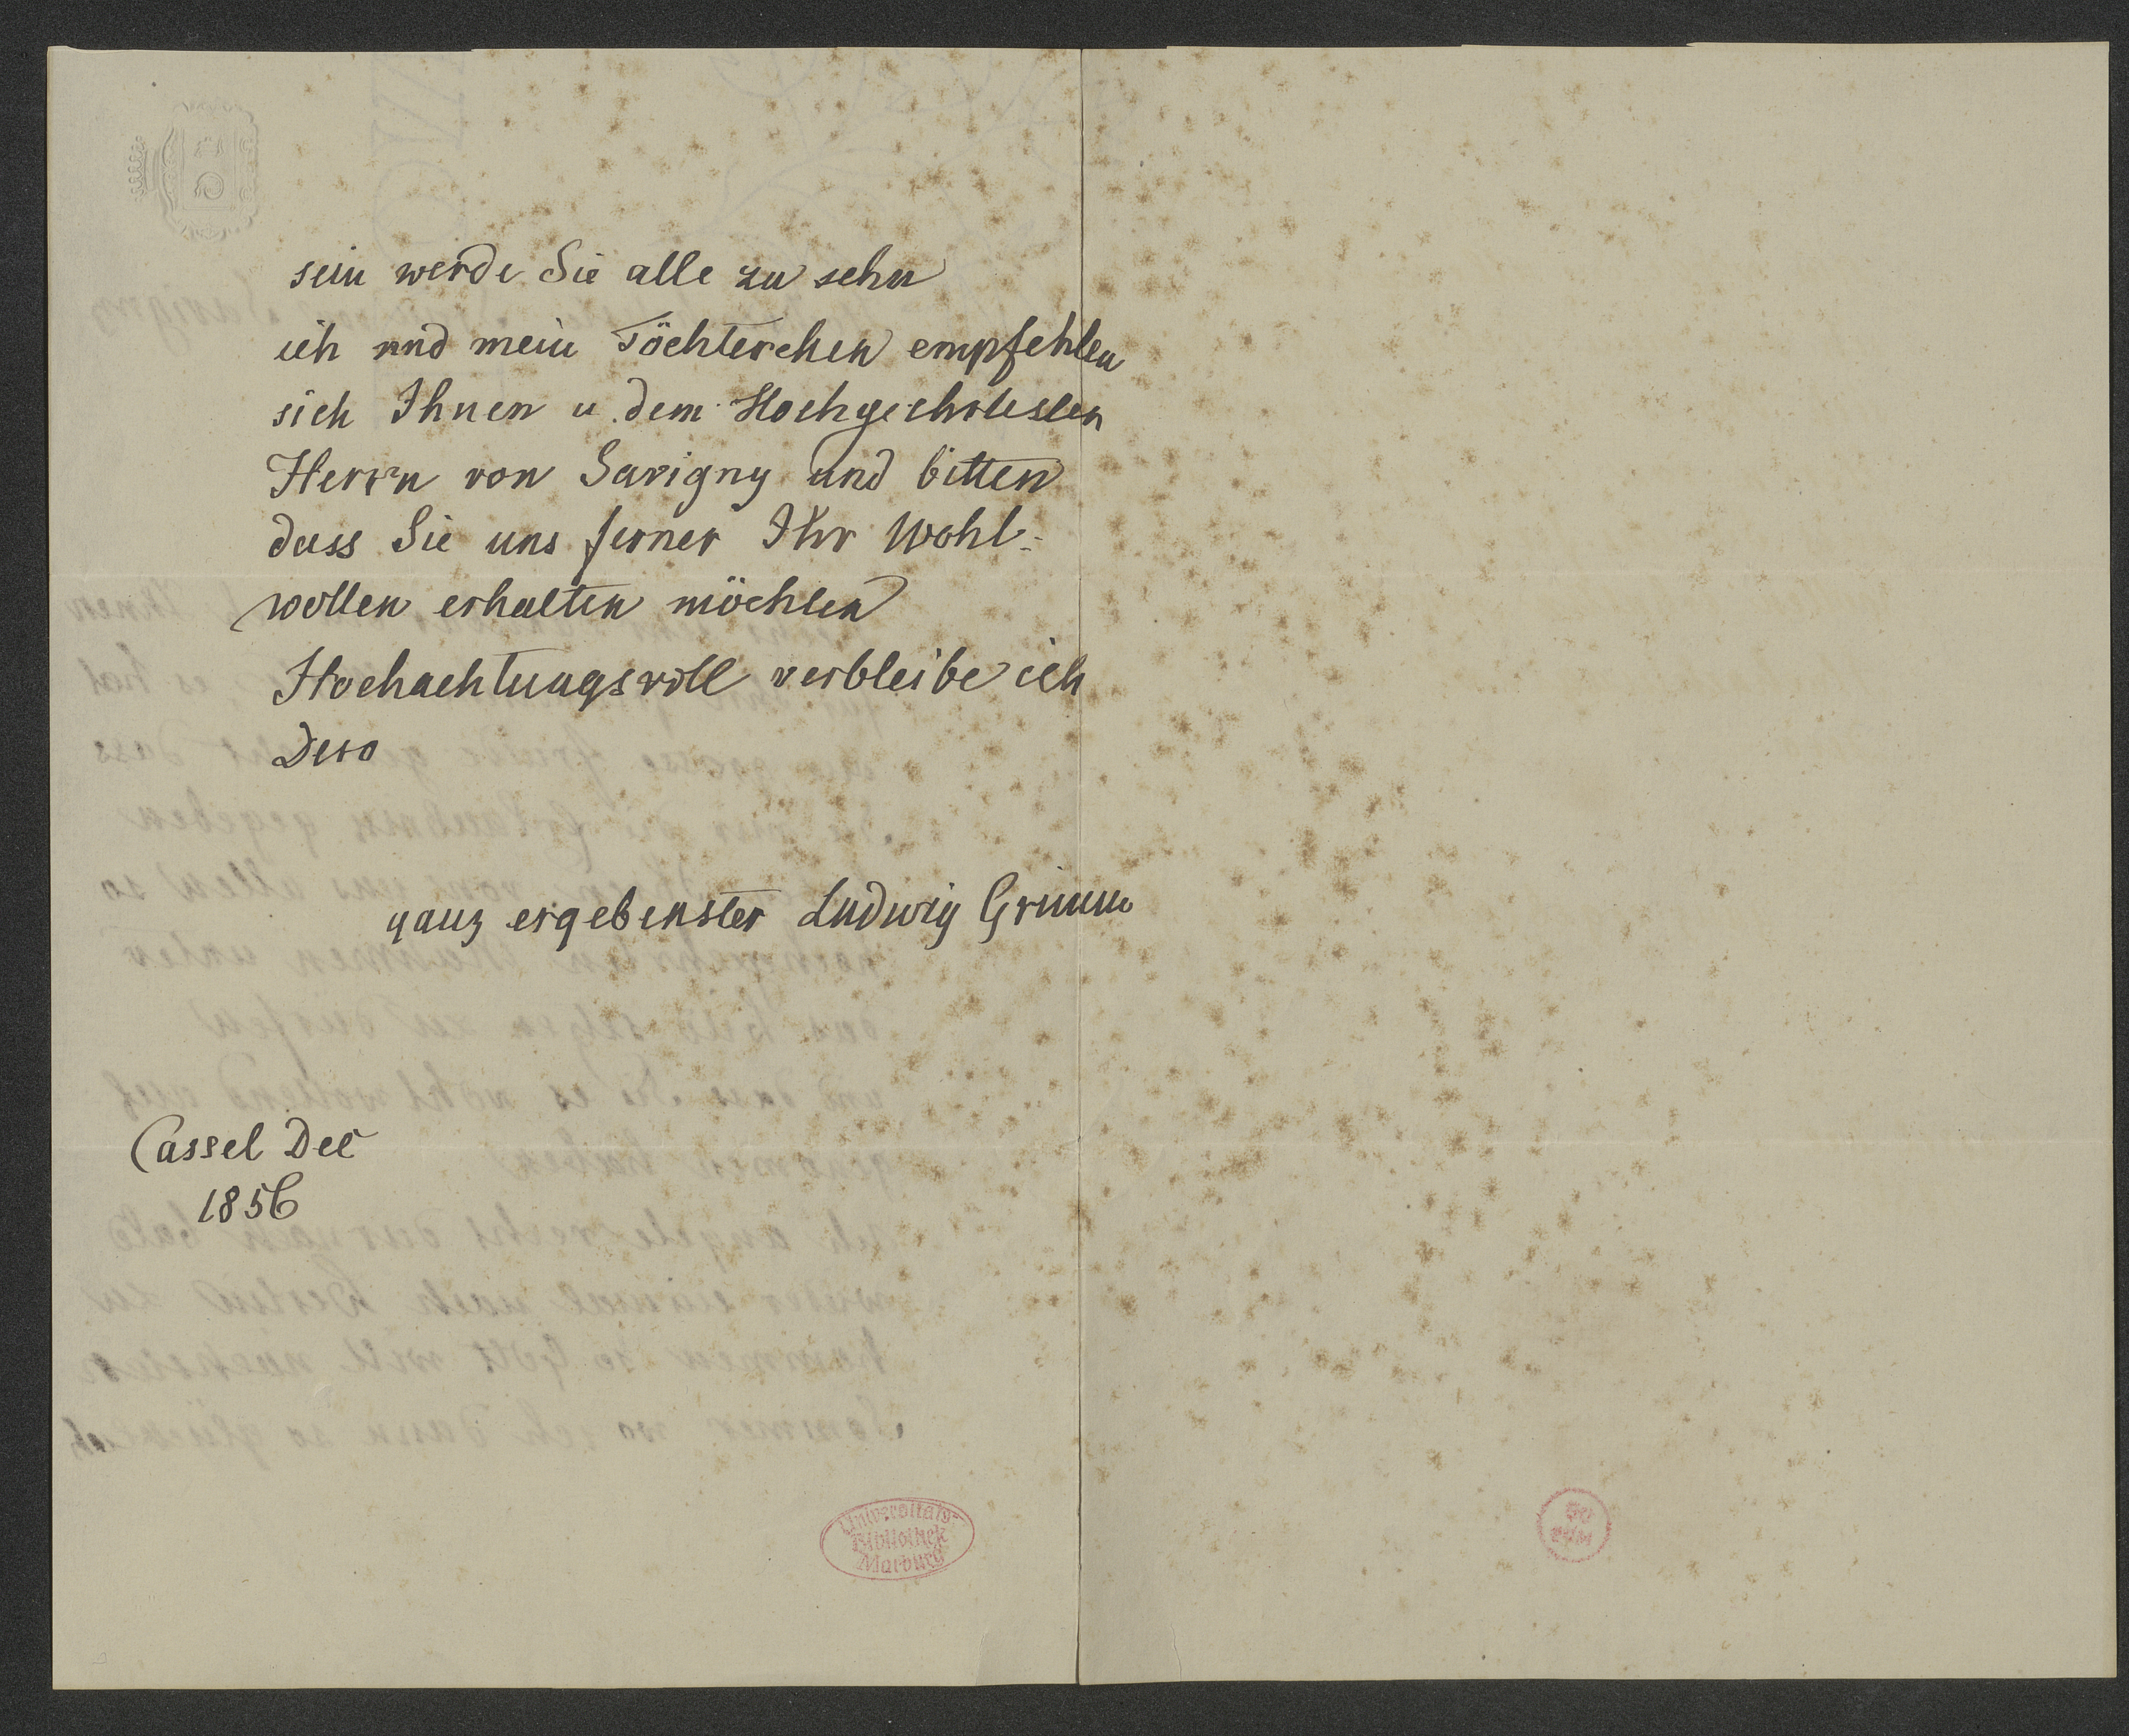 sein werde Sie alle zu sehn
ich und mein Töchterchen empfehlen
sich Ihnen u. dem Hochgeehrtesten
Herrn von Savigny und bitten
dass Sie uns ferner Ihr Wohl-
wollen erhalten möchten
Hochachtungsvoll verbleibe ich
Dero
ganz ergebenster Ludwig Grimm
Cassel Dec
1856
Universitäts-
Bibliothek
Marburg